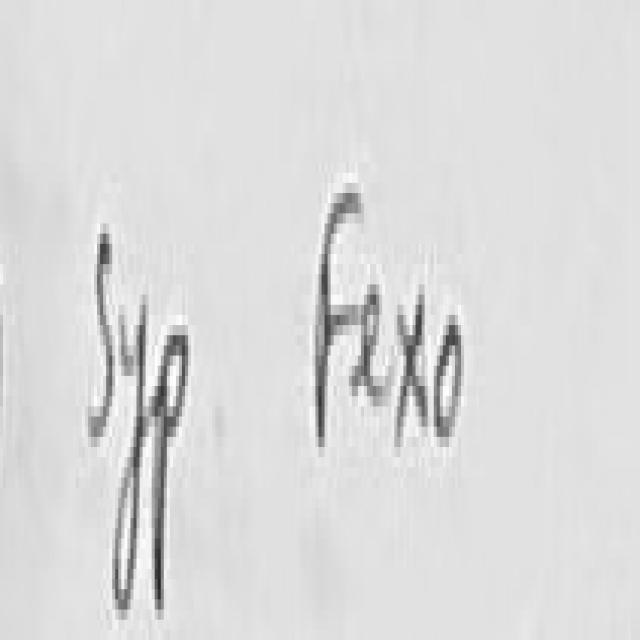 Syp Fexo